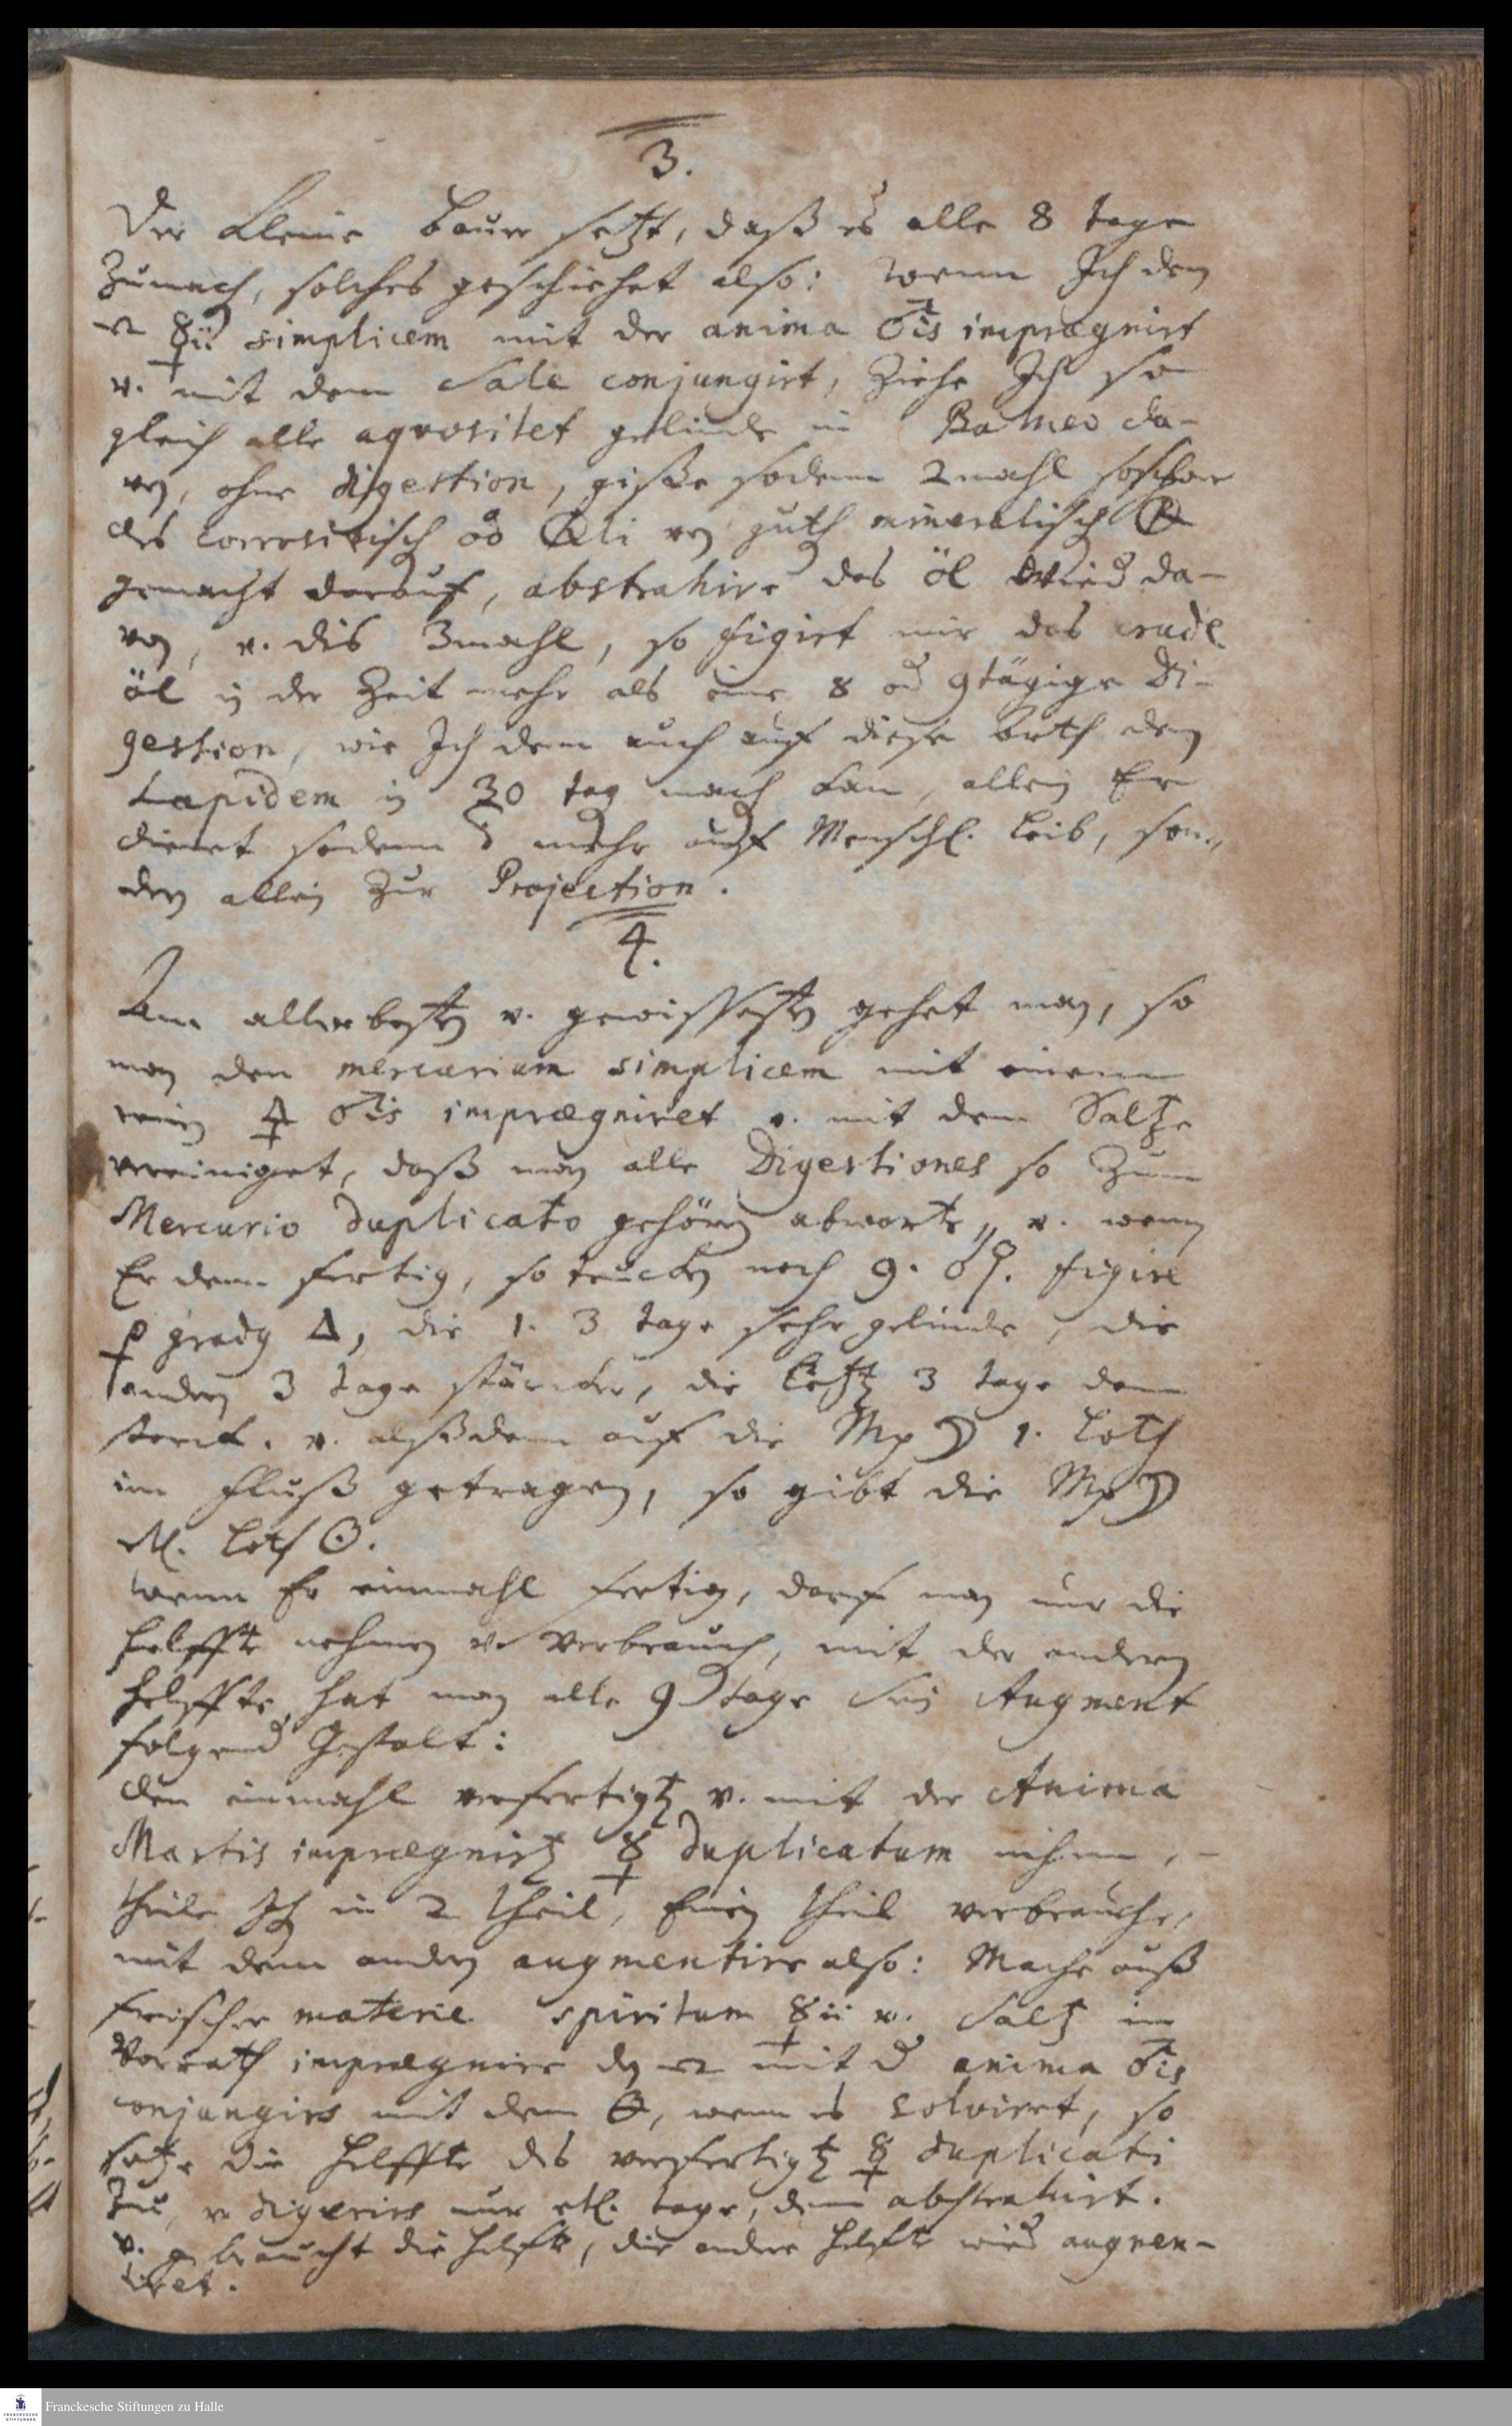 3.
Der kleine Bauer setzt, daß es alle 8 tage
zumach, solches geschiehet also: wenn Ich den
☿ii simplicem mit der anima ♂tis imprægnirt
v. mit dem Sale conjungirt, Ziehe Ich so
gleich alle aqvositet gelinde in Balneo da-
von, ohne digestion, giße sodann 2mahl
des corrosivisch od. Oli von guth mineralisch
gemacht darauf, abstrahire das öl wied da-
von, v. dis 3mahl, so figirt mir das crude
öl in der Zeit mehr als eine 8 od 9tägige Di-
gestion, wie Ich denn auch auf diese arth den
Lapidem in 30 tag mach kan, allein Er
dienet sodann mehr auf Menschl. Leib, son-
dern allein zur Projection.
4.
Am allerbesten v. gewissesten gehet man, so
man den mercurium simplicem mit einem
rein 🜍 ♂tis imprægniret v. mit dem Saltze
vereiniget, daß man alle Digestiones so Zum
Mercurio duplicato gehören abwarte, v. wenn
Er denn fertig, so trucken noch 9. figire
p grady △, die 1. 3 tage sehr gelinde, die
andern 3 tage stärcker, die letzten 3 tage dann
starck. v. alßdann auf die Mp ☽ 1. Loth
im Fluß getragen, so gibt die Mp ☽
Loth ☉.
wenn Er einmahl fertig, darf man nur die
helffte nehmen v. verbrauch, mit der andern
helffte hat man alle 9 tage Sein Augment
folgend Gestalt:
den einmahl verfertigten v. mit der Anima
Martis imprægnirten ☿ duplicatum nehmen,
theile Ich in 2 theil, Einen theil verbrauche,
mit dem andern augmentire also: Mache auß
frischer materie spiritum ☿ii v. Saltz im
Vorrath imprægnire den mit d anima ♂tis
conjungire mit dem 🜔, wenn es solviret, so
setze die helffte des verfertigten ☿ duplicati
zu, v digerire nur etl. tage, dann abstrahirt.
v. gebraucht die helfte, die andere helfte wird augmen-
tiret.
Franckesche Stiftungen zu Halle